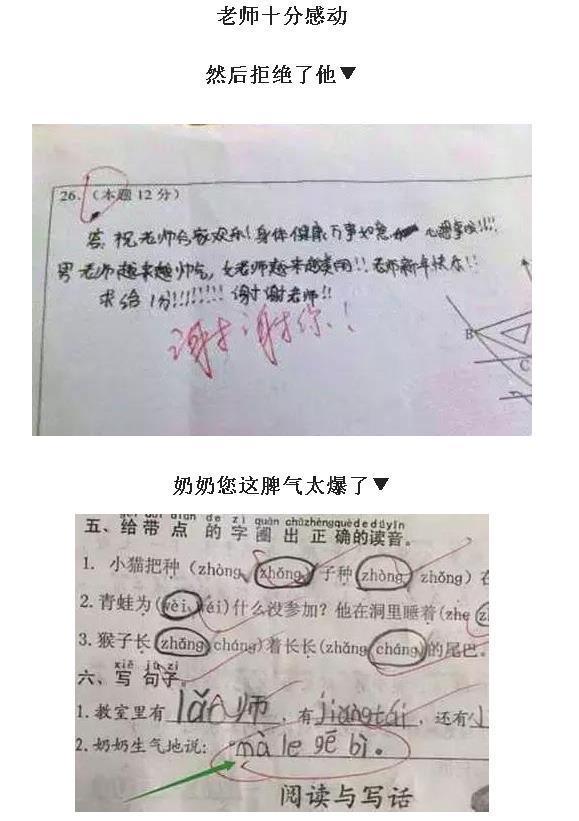 老师十分感动
然后拒绝了他▼
26.（本题12分）
答:祝老师合家欢乐!身体健康 万事如意 心想事成!!!!
男老师越来越帅气,女老师越来越美丽!!老师新年快乐!!
求给1分!!!!!!!!谢谢老师!!
谢谢你!!
B
C
奶奶您这脾气太爆了▼
gěi dài diǎn de zì quān chūzhèngquèdedúyīn
五、给带点的字圈出正确的读音。
1. 小猫把种（zhòng zhǒng）子种（zhòng zhǒng）在
2. 青蛙为(wèi wéi)什么没参加？他在洞里睡着(zhe
3. 猴子长(zhǎng cháng)着长长(zhǎng cháng)的尾巴。
xiě jù zi
六、写句子。
1. 教室里有lǎo师，有jiǎngtái，还有
2. 奶奶生气地说：“mà le gē bì。
阅读与写话